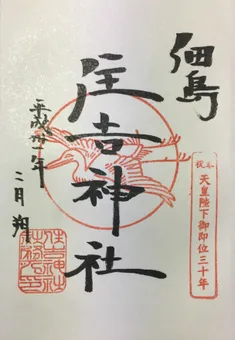 佃島
奉祝 天皇陛下御即位三十年
住吉神社
平成卅一年
二月朔